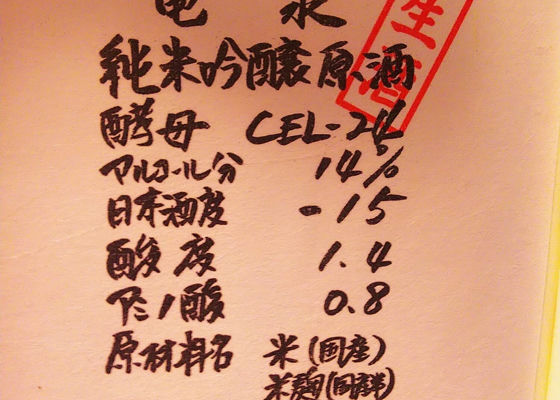 亀泉
純米吟醸原酒
生酒
酵母 CEL-24
アルコール分 14%
日本酒度 -15
酸度 1.4
アミノ酸 0.8
原材料名 米(国産)
米麹(国産米)